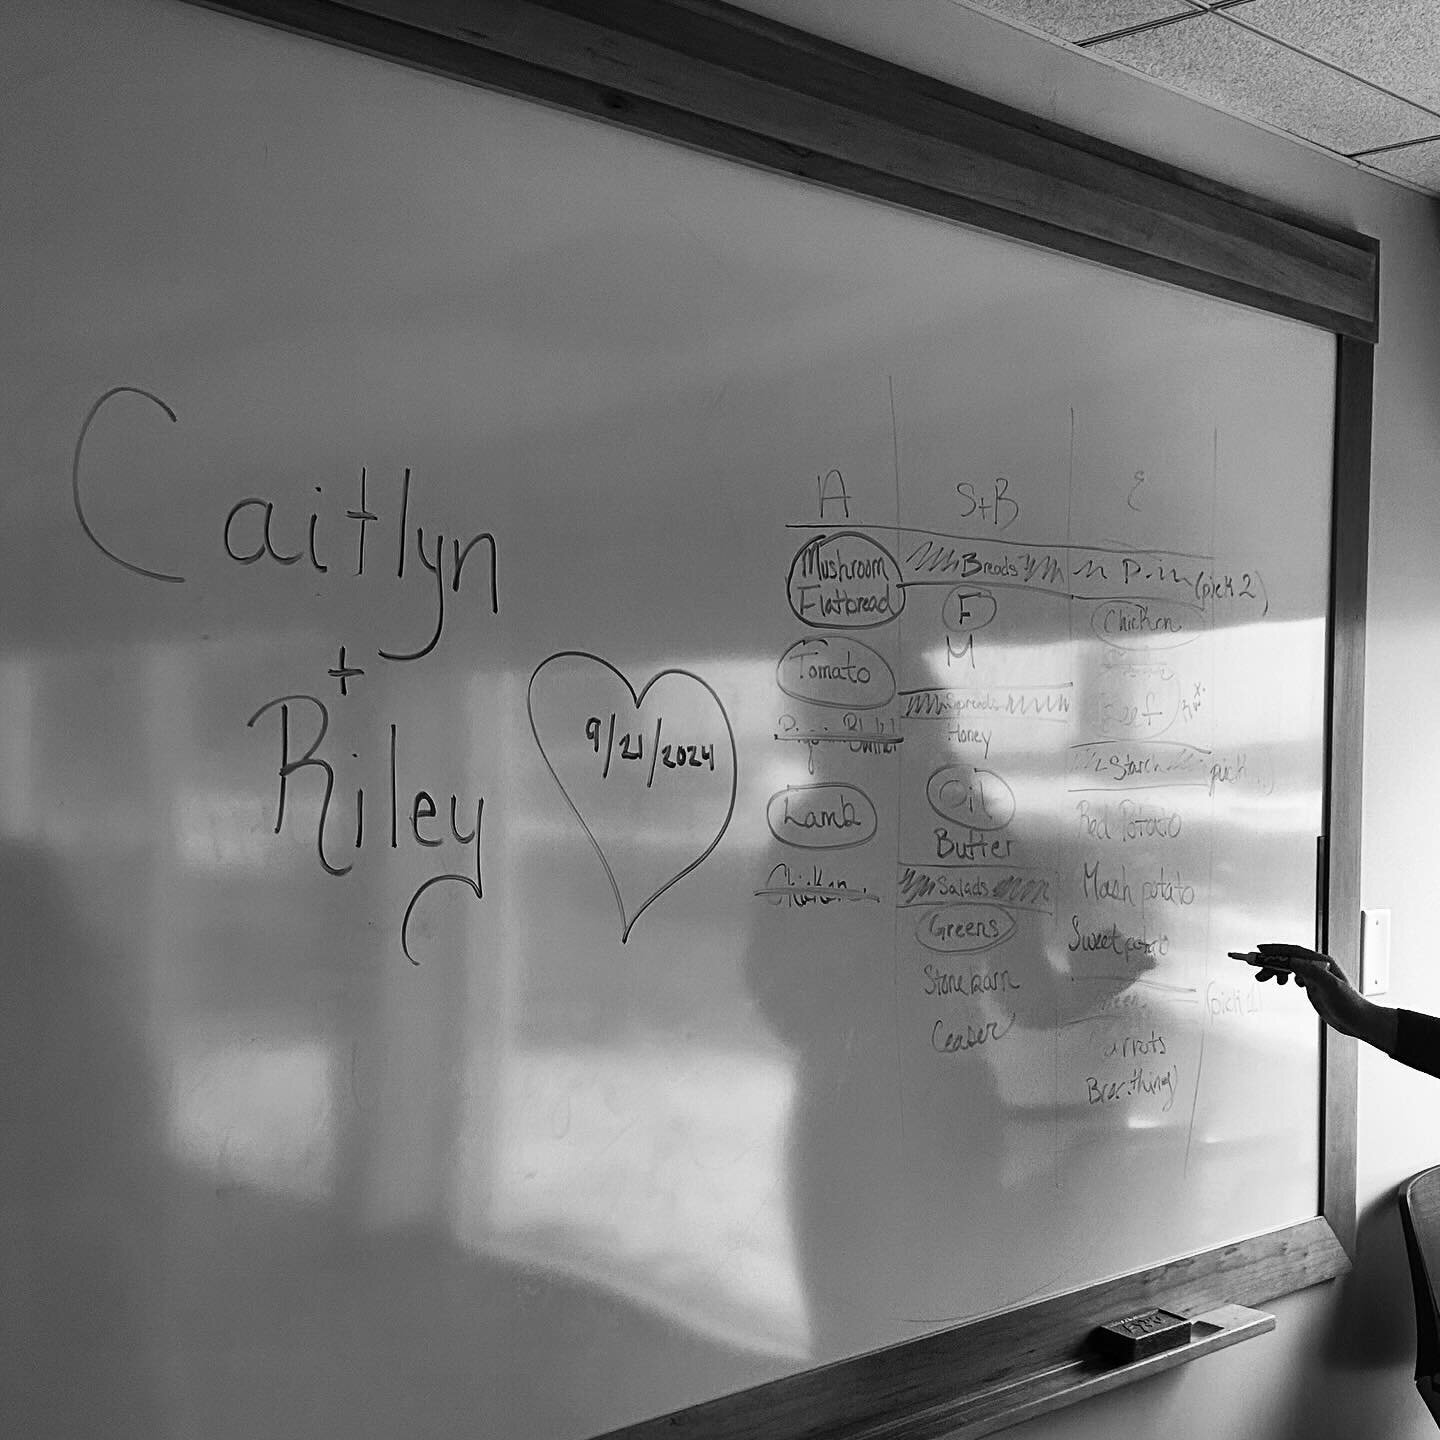 Caitlyn
+
Riley
9/21/2024
A
Mushroom
Flatbread
Tomato
Lamb
Chicken
S+B
Breads
F
M
Spreads
Honey
Oil
Butter
Salads
Greens
Stone barn
Ceaser
E
P (pick 2)
Chicken
Beef
Starch pick
Red Potato
Mash potato
Sweet potato
(pick 1)